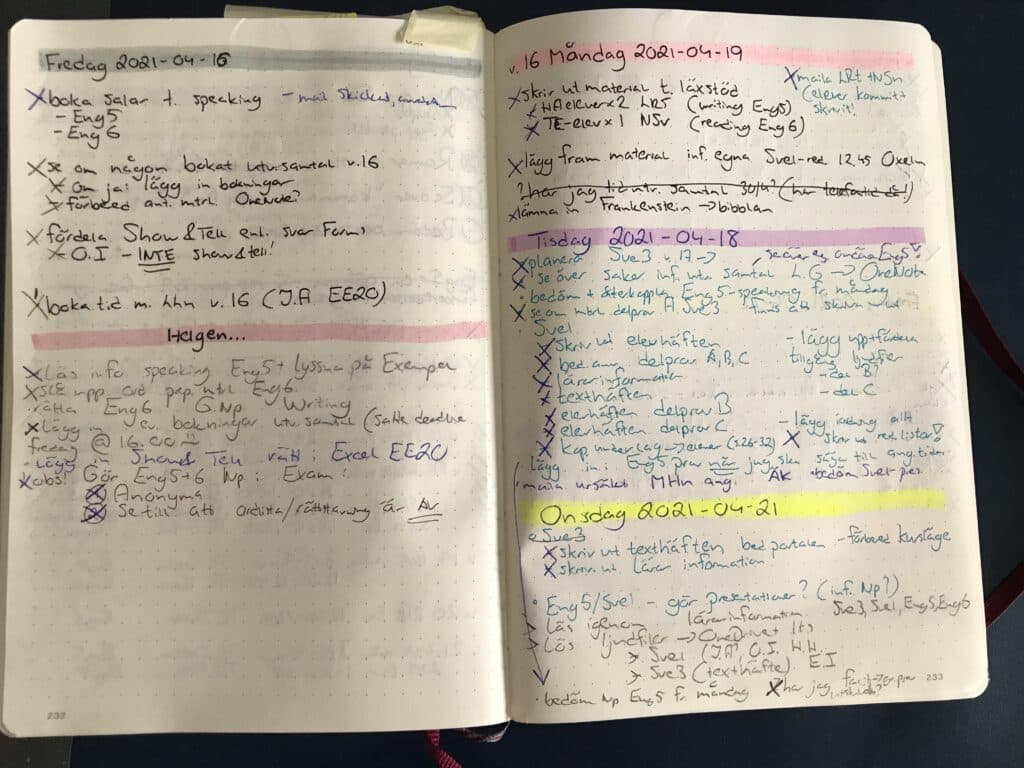 Fredag 2021-04-16
X boka salar t. speaking - mail skickad,
- Eng5
- Eng 6
X se om någon bokat utv.samtal v.16
X om ja: lägg in bokningar
X förbered ant. mtrl. OneNote?
X fördela Show & Tell enl. svar Forms
X O.I - INTE show & tell!
X boka tid m. hhn v. 16 (J.A EE20)
Helgen...
X Läs info speaking Eng5 + lyssna på Exempel
X SLE upp ord pep. mtrl Eng6
rätta Eng6 G.Np. Writing
X lägg in ev. bokningar utv.samtal (satte deadline
fredag @ 16.00
- lägg in Show & Tell rätt i Excel EE20
X obs! Gör Eng5+6 Np i Exam:
X Anonyma
X Se till att ordlista/rättstavning är Av
232
v.16 Måndag 2021-04-19
X skriv ut material t. läxstöd
X NA elever x 2 LRT (writing Eng5)
X TE-elev x 1 NSv (reading Eng 6)
X maila LRT + NSv
(elever kommit +
skrivit!
X lägg fram material inf. egna Sve1-red 12.45 Oxeln
? har jag tid utv. samtal 30/4?
X lämna in Frankenstein → bibblan
Tisdag 2021-04-18
X planera Sve3 v.17 →
X se över saker inf. utv samtal L.G → OneNote
• bedöm + återkoppla Eng 5-speaking fr. måndag
X se om mtrl delprov A Sve3 finns att skriva ut
• Sve1
X skriv ut elevhäften
X bed.anv. delprov A, B, C
X lärarinformation
X texthäften
X elevhäften delprov B
X elevhäften delprov C
X kop. underlag → elever (s.26-32)
- lägg upp + fördela
tillgång ljudfiler
- del B?
- del C
- lägg i ordning allt
X skriv ut red.listor!
lägg in i Eng5 prov när jag ska säga till ang. tiden
maila ursäkt MHn ang. ÄK bedöm Sve1-pres.
Onsdag 2021-04-21
• Sve3
X skriv ut texthäften bed portalen - förbered kursläge
X skriv ut lärarinformation
• Eng5/Sve1 - gör presentationer? (inf. Np?)
Läs igenom lärarinformation Sve3, Sve1, Eng5, Eng6
Lös ljudfiler → OneDrive + Its
→ Sve1 (J.A, O.I, H.H
→ Sve3 (texthäfte) E.I
• bedöm Np Eng5 fr. måndag X har jag prov
233